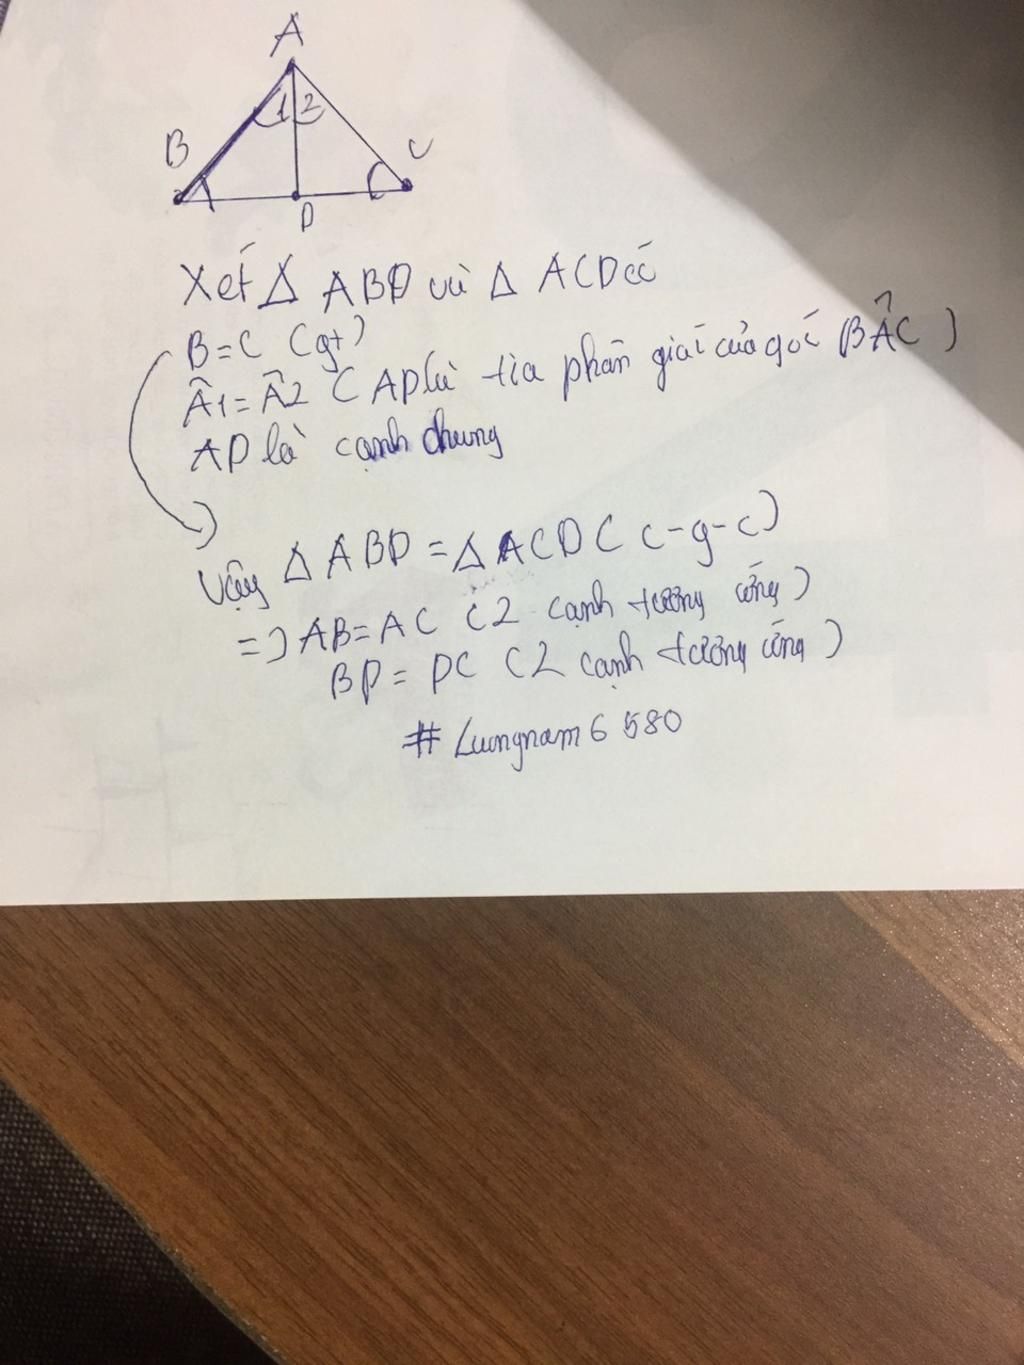 A
1 2
B
C
D
Xét Δ ABD và Δ ACD có
B = C (gt)
Â1 = Â2 ( AD là tia phân giác của góc BÂC )
AD là cạnh chung
Vậy Δ ABD = Δ ACD ( c-g-c )
=> AB = AC ( 2 cạnh tương ứng )
BD = DC ( 2 cạnh tương ứng )
# Luongnam6580